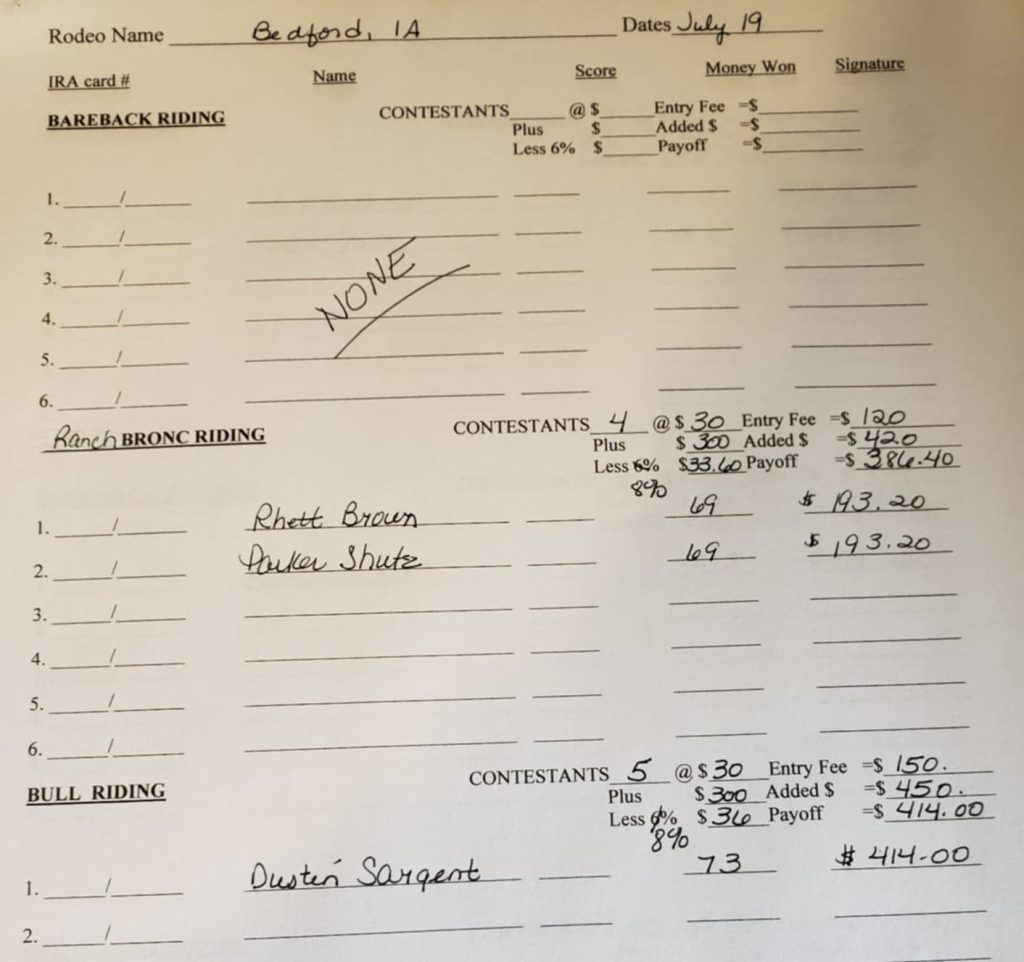 Rodeo Name Bedford, IA Dates July 19
IRA card # Name Score Money Won Signature
BAREBACK RIDING CONTESTANTS ____ @ $ ____ Entry Fee =$ ____
Plus $ ____ Added $ =$ ____
Less 6% $ ____ Payoff =$ ____
1. ____/____
2. ____/____
3. ____/____
NONE
4. ____/____
5. ____/____
6. ____/____
Ranch BRONC RIDING CONTESTANTS 4 @ $ 30 Entry Fee =$ 120
Plus $ 300 Added $ =$ 420
Less 6% $33.60 Payoff =$ 386.40
8%
1. ____/____ Rhett Brown 69 $ 193.20
2. ____/____ Parker Shutz 69 $ 193.20
3. ____/____
4. ____/____
5. ____/____
6. ____/____
BULL RIDING CONTESTANTS 5 @ $ 30 Entry Fee =$ 150.
Plus $ 300 Added $ =$ 450.
Less 6% $ 36 Payoff =$ 414.00
8%
1. ____/____ Dustin Sargent 73 $ 414-00
2. ____/____